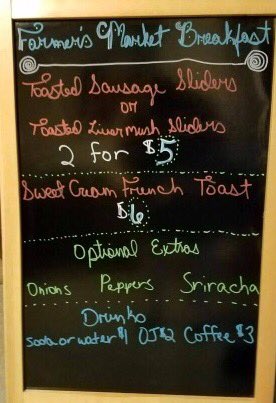 Farmer's Market Breakfast
Toasted Sausage Sliders
or
Toasted Livermush Sliders
2 for $5
Sweet Cream French Toast
$6
Optional Extras
Onions Peppers Sriracha
Drinks
Soda or water $1 OJ $2 Coffee $3